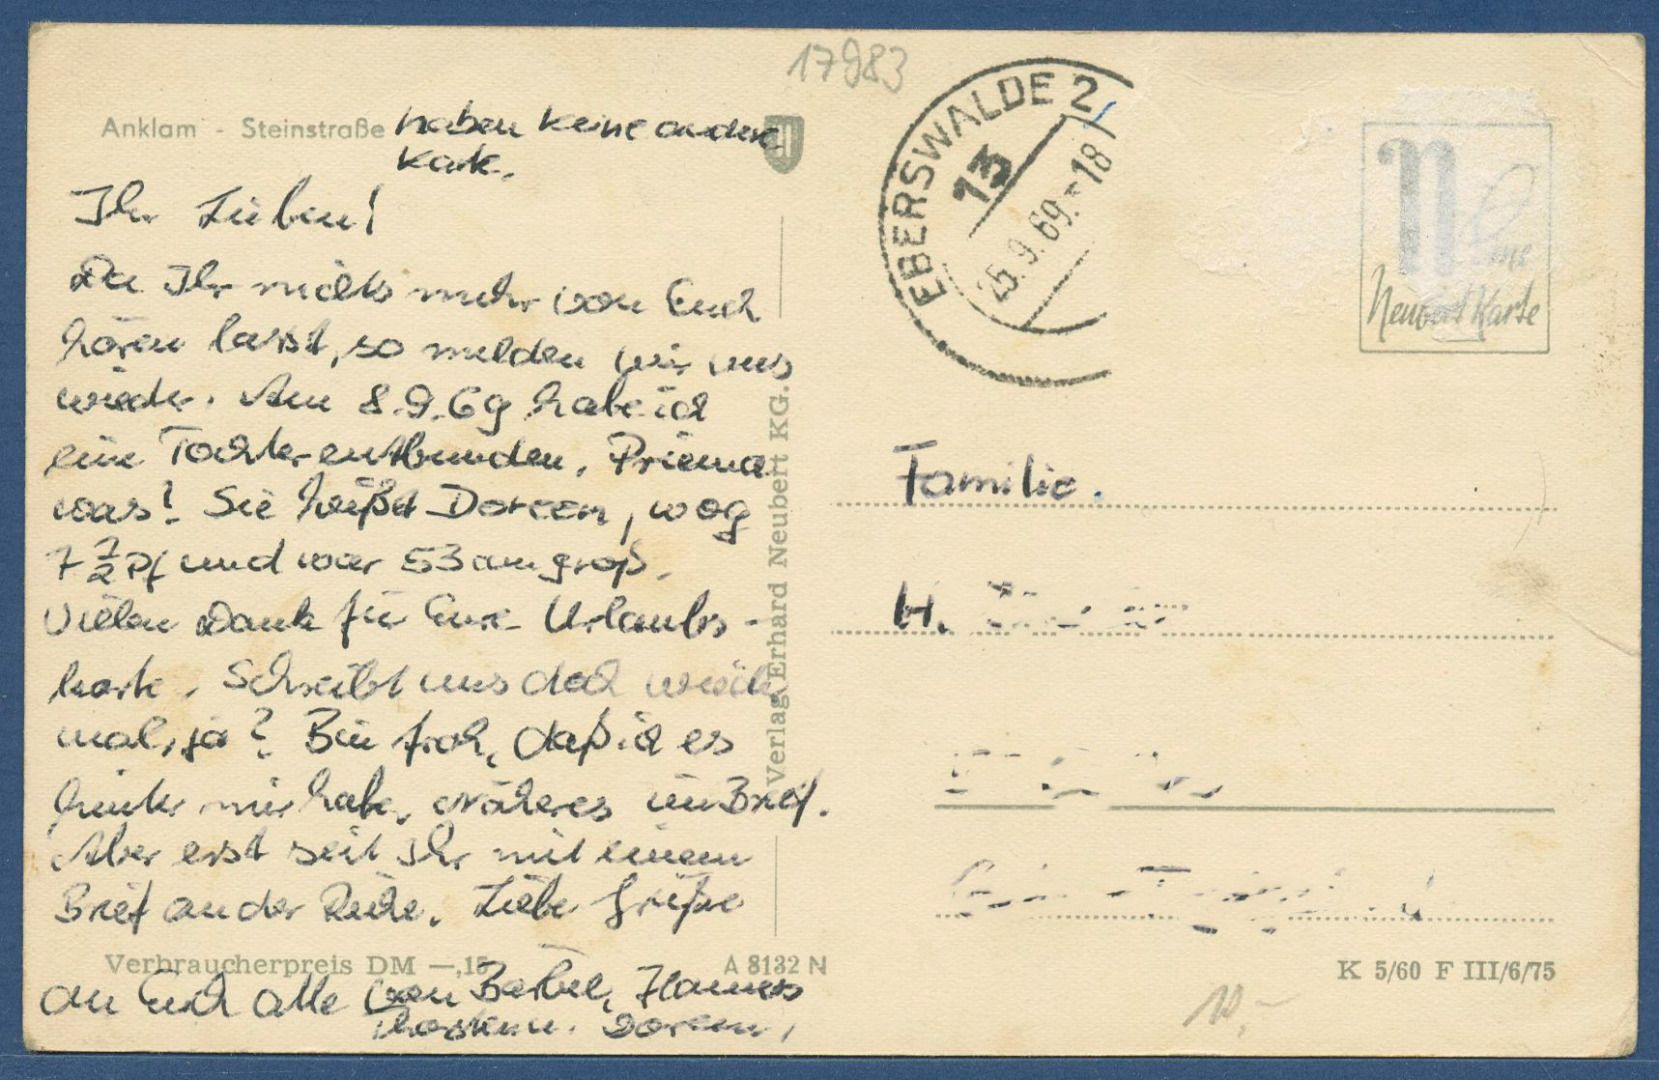 17983
Anklam - Steinstraße
haben keine andere
Karte.
Ihr Lieben!
Da Ihr nichts mehr von Euch
hören lasst, so melden wir uns
wieder. Am 8.9.69 habe ich
eine Tochter entbunden. Prima
was? Sie heißt Doreen, wog
7 7/2 Pf und war 53 cm groß.
Vielen Dank für Eure Urlaubs-
karte. Schreibt uns doch wieder
mal, ja? Bin froh, daß ich es
hinter mir habe, näheres im Brief.
Aber erst seit Ihr mit einem
Brief an der Reihe. Liebe Grüße
an Euch alle von Bärbel, Hannes
Thorsten u. Doreen,
Verbraucherpreis DM —,15
A 8132 N
Verlag Erhard Neubert KG.
EBERSWALDE 2
13
25.9.69.-18
N
Neubert Karte
Familie.
H.
K 5/60 F III/6/75
10,-